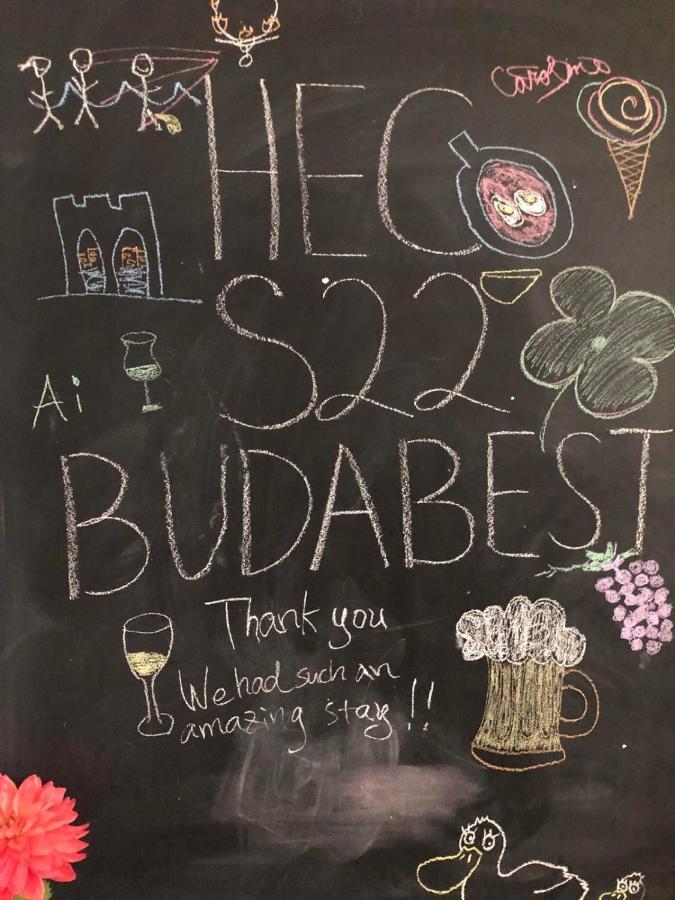 Caroline
HEC
S22
Ai
BUDABEST
Thank you
We had such an
amazing stay!!